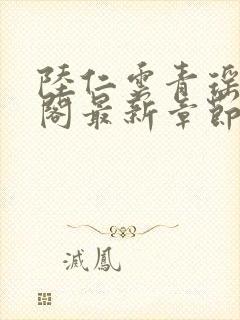 陸仁雲青瑶
閣最新章節
滅鳳